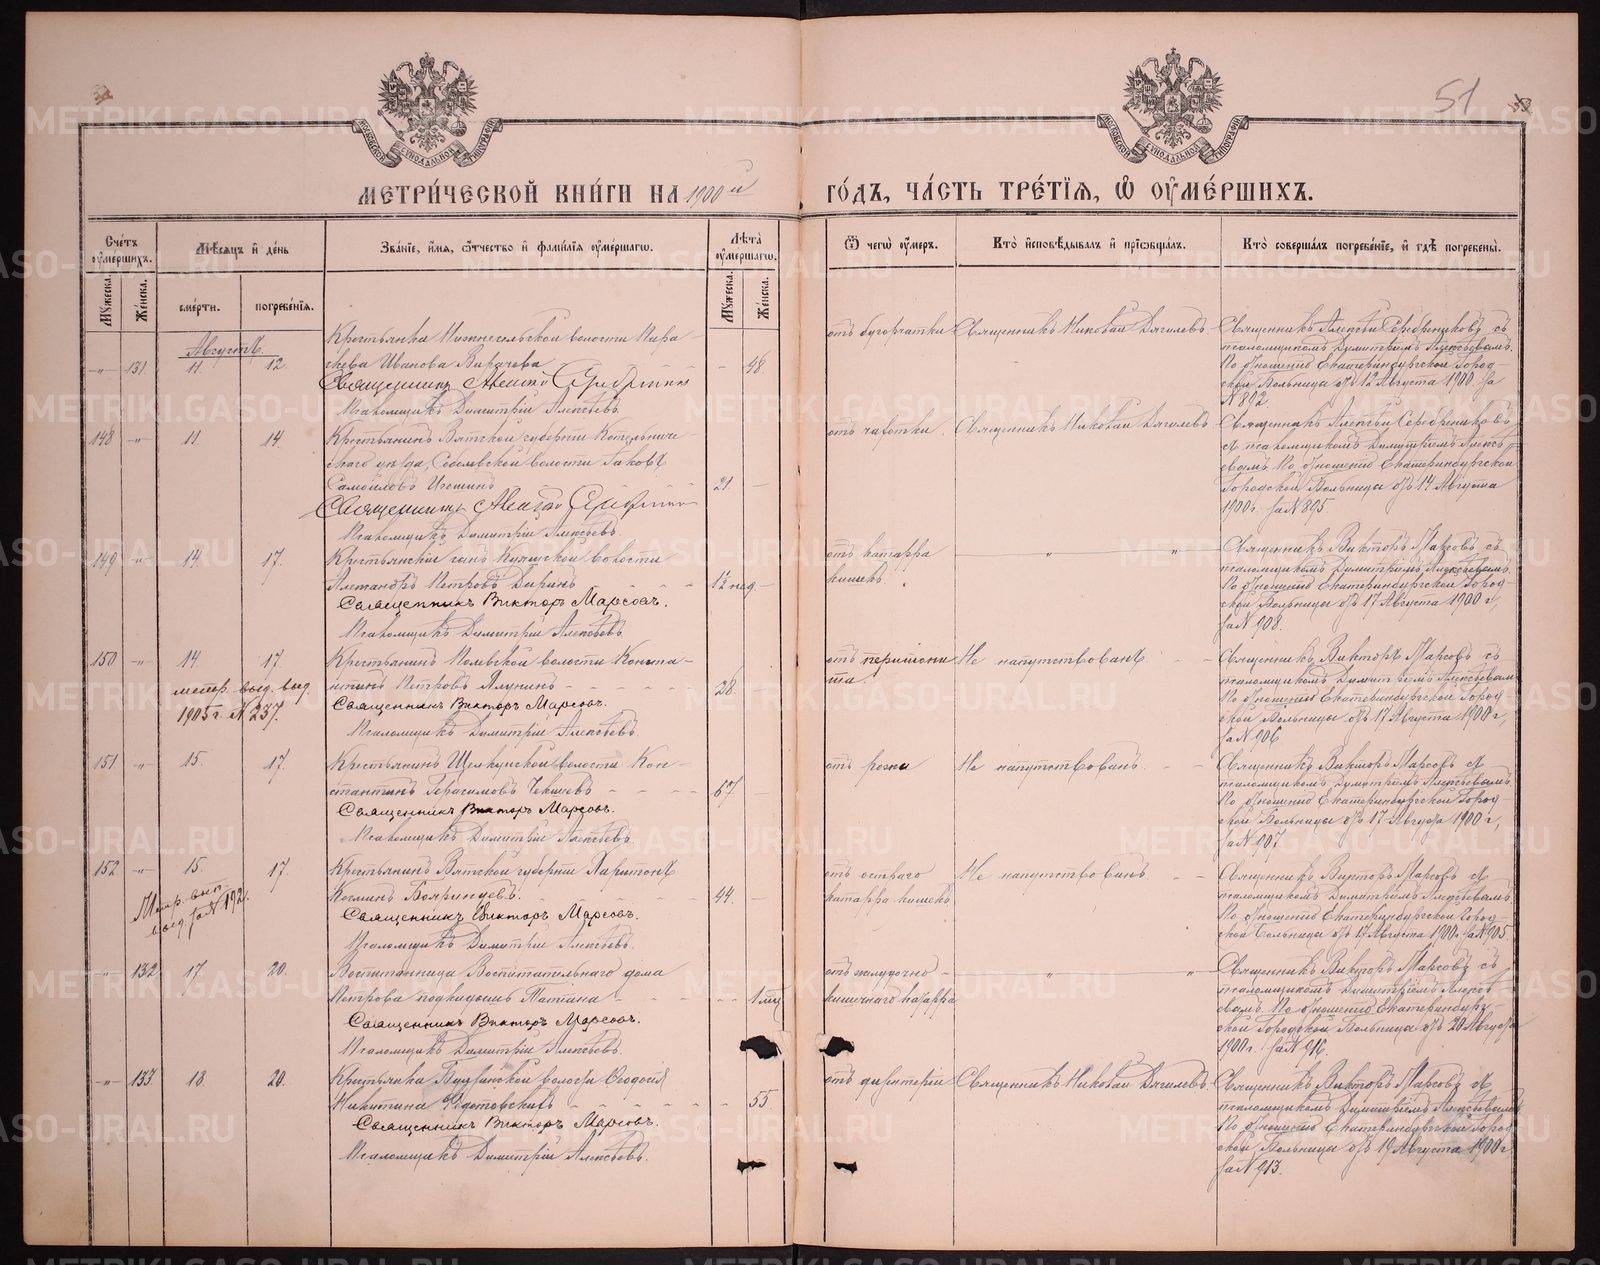 51
МЕТРИ́ЧЕСКОЙ КНИ́ГИ НА 1900й
ГО́ДЪ, ЧА́СТЬ ТРЕ́ТІЯ, Ѿ ОУМЕ́РШИХЪ.
Счéтъ оумéршихъ.
Мꙋжеска.
Жéнска.
Мѣ́сяцъ и дéнь
смéрти.
погребéнїя.
Звáнїе, и́мя, óтчество и фамилїя оумéршагѡ.
Лѣ́та оумéршагѡ.
Мꙋжеска.
Жéнска.
Ѿ чегѡ̀ оу́меръ.
Ктò и́сповѣ́дывалъ и прїѡбщáлъ.
Ктò совершáлъ погребéнїе, и гдѣ̀ погребены̀.
Августъ
-"- 131 11. 12
Крестьянка Нижнесельской волости Пара-
скева Иванова
48
Священникъ
Псаломщикъ Димитрій Алексѣевъ
отъ бугорчатки
Священникъ Николай Дягилевъ
Священникъ Алексѣй Серебренниковъ съ
псаломщикомъ Димитріемъ Алексѣевымъ.
По отношенію Екатеринбургской Город-
ской Больницы отъ 12 Августа 1900 за
№ 892
148 -"- 11. 14.
Крестьянинъ Вятской губерніи Котельниче-
скаго уѣзда, волости Іаковъ
Самойловъ
21
Священникъ
Псаломщикъ Димитрій Алексѣевъ
отъ чахотки
Священникъ Николай Дягилевъ
Священникъ Алексѣй Серебренниковъ
съ псаломщикомъ Димитріемъ Алексѣ-
евымъ. По отношенію Екатеринбургской
Городской Больницы отъ 14 Августа
1900 г. за № 895
149 -"- 14. 17.
Крестьянскій сынъ волости
Александръ Петровъ
1½ нед.
Священникъ Викторъ Марсовъ.
Псаломщикъ Димитрій Алексѣевъ
отъ катарра
кишекъ.
" "
Священникъ Викторъ Марсовъ съ
псаломщикомъ Димитріемъ Алексѣевымъ.
По отношенію Екатеринбургской Город-
ской Больницы отъ 17 Августа 1900 г,
за № 908.
150 -"- 14. 17.
Крестьянинъ Полевской волости Конста-
нтинъ Петровъ
28
метр. выд.
1905 г. № 237.
Священникъ Викторъ Марсовъ.
Псаломщикъ Димитрій Алексѣевъ.
отъ перитони
та
Не напутствованъ
Священникъ Викторъ Марсовъ съ
псаломщикомъ Димитріемъ Алексѣевымъ
По отношенію Екатеринбургской Город-
ской Больницы отъ 17 Августа 1900 г,
за № 906
151 -"- 15. 17.
Крестьянинъ Щелкунской волости Кон-
стантинъ Герасимовъ
67
Священникъ Викторъ Марсовъ.
Псаломщикъ Димитрій Алексѣевъ.
отъ рожи
Не напутствованъ
Священникъ Викторъ Марсовъ съ
псаломщикомъ Димитріемъ Алексѣевымъ.
По отношенію Екатеринбургской Город-
ской Больницы отъ 17 Августа 1900 г,
за № 907
152 -"- 15. 17.
Крестьянинъ Вятской губерніи Харитонъ
Козминъ Бояринцевъ
44.
Метр. вып.
выд. за № 192.
Священникъ Викторъ Марсовъ.
Псаломщикъ Димитрій Алексѣевъ.
отъ остраго
катарра кишекъ
Не напутствованъ
Священникъ Викторъ Марсовъ съ
псаломщикомъ Димитріемъ Алексѣевымъ.
По отношенію Екатеринбургской Город-
ской Больницы отъ 17 Августа 1900 г. за № 905.
-"- 132 17. 20.
Воспитанница Воспитательнаго дома
Петрова подкидышъ Татіана
1 мц
Священникъ Викторъ Марсовъ.
Псаломщикъ Димитрій Алексѣевъ.
отъ желудочно-
кишечнаго катарра
" "
Священникъ Викторъ Марсовъ съ
псаломщикомъ Димитріемъ Алексѣ-
евымъ. По отношенію Екатеринбург-
ской Городской Больницы отъ 20 Августа
1900 г. за № 916.
-"- 133 18. 20.
Крестьянка волости Ѳеодосія
Никитина
55
Священникъ Викторъ Марсовъ.
Псаломщикъ Димитрій Алексѣевъ.
отъ дизентеріи
Священникъ Николай Дягилевъ.
Священникъ Викторъ Марсовъ съ
псаломщикомъ Димитріемъ Алексѣевымъ
По отношенію Екатеринбургской Город-
ской Больницы отъ 19 Августа 1900 г
за № 913.
METRIKI.GASO-URAL.RU